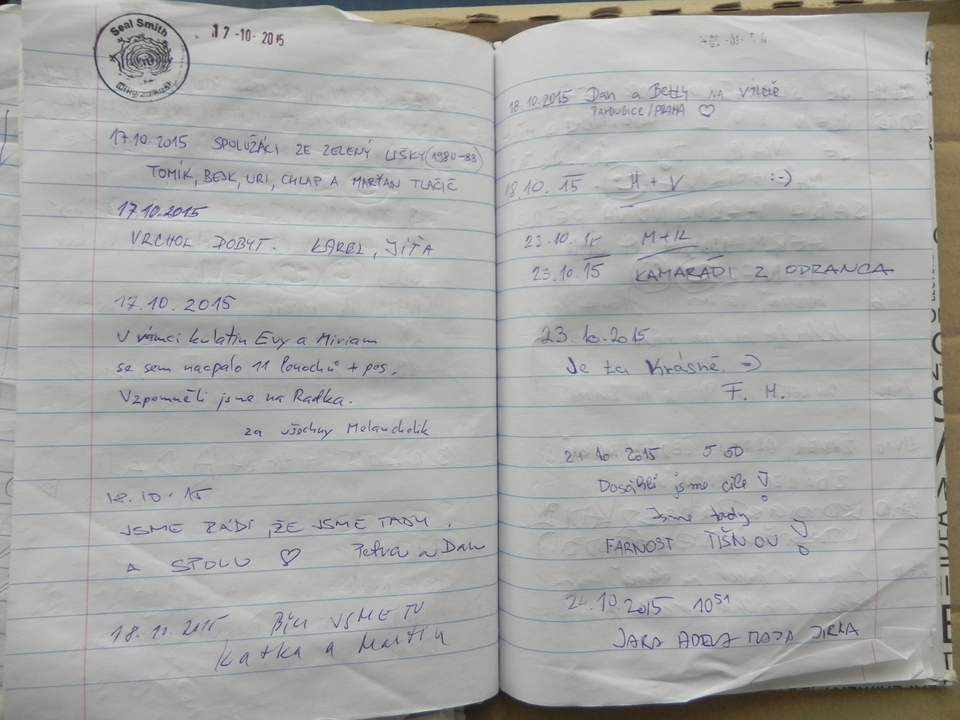 Seal Smith
17-10-2015
17.10.2015 SPOLUŽÁCI ZE ZELENÝ LIŠKY (1980-88)
TOMÍK, BEJK, URI, CHLAP A MARŤAN TLAČIČ
17.10.2015
VRCHOL DOBYT. KAREL, JÍŤA
17.10.2015
V rámci kulatin Evy a Miriam
se sem nacpalo 11 + pos.
Vzpomněli jsme na Radka.
za všechny Melancholik
18.10.15
JSME RÁDI, ŽE JSME TADY.
A SPOLU ♡ Petra a Dan
18.10.2015 BYLI JSME TU
Katka a Martin
18.10.2015 Dan a Betty NA VÝLETĚ
PARDUBICE/PRAHA ♡
18.10.15 H + V :-)
23.10.15 M+K
23.10.15 KAMARÁDI Z ODRANCA
23.10.2015
Je tu Krásně. =)
F. M.
24.10.2015 5:50
Dosáhli jsme cíle!
Jsme tady
FARNOST TIŠNOV!
24.10.2015 10 51
JARA ADELA MAJA JIRKA